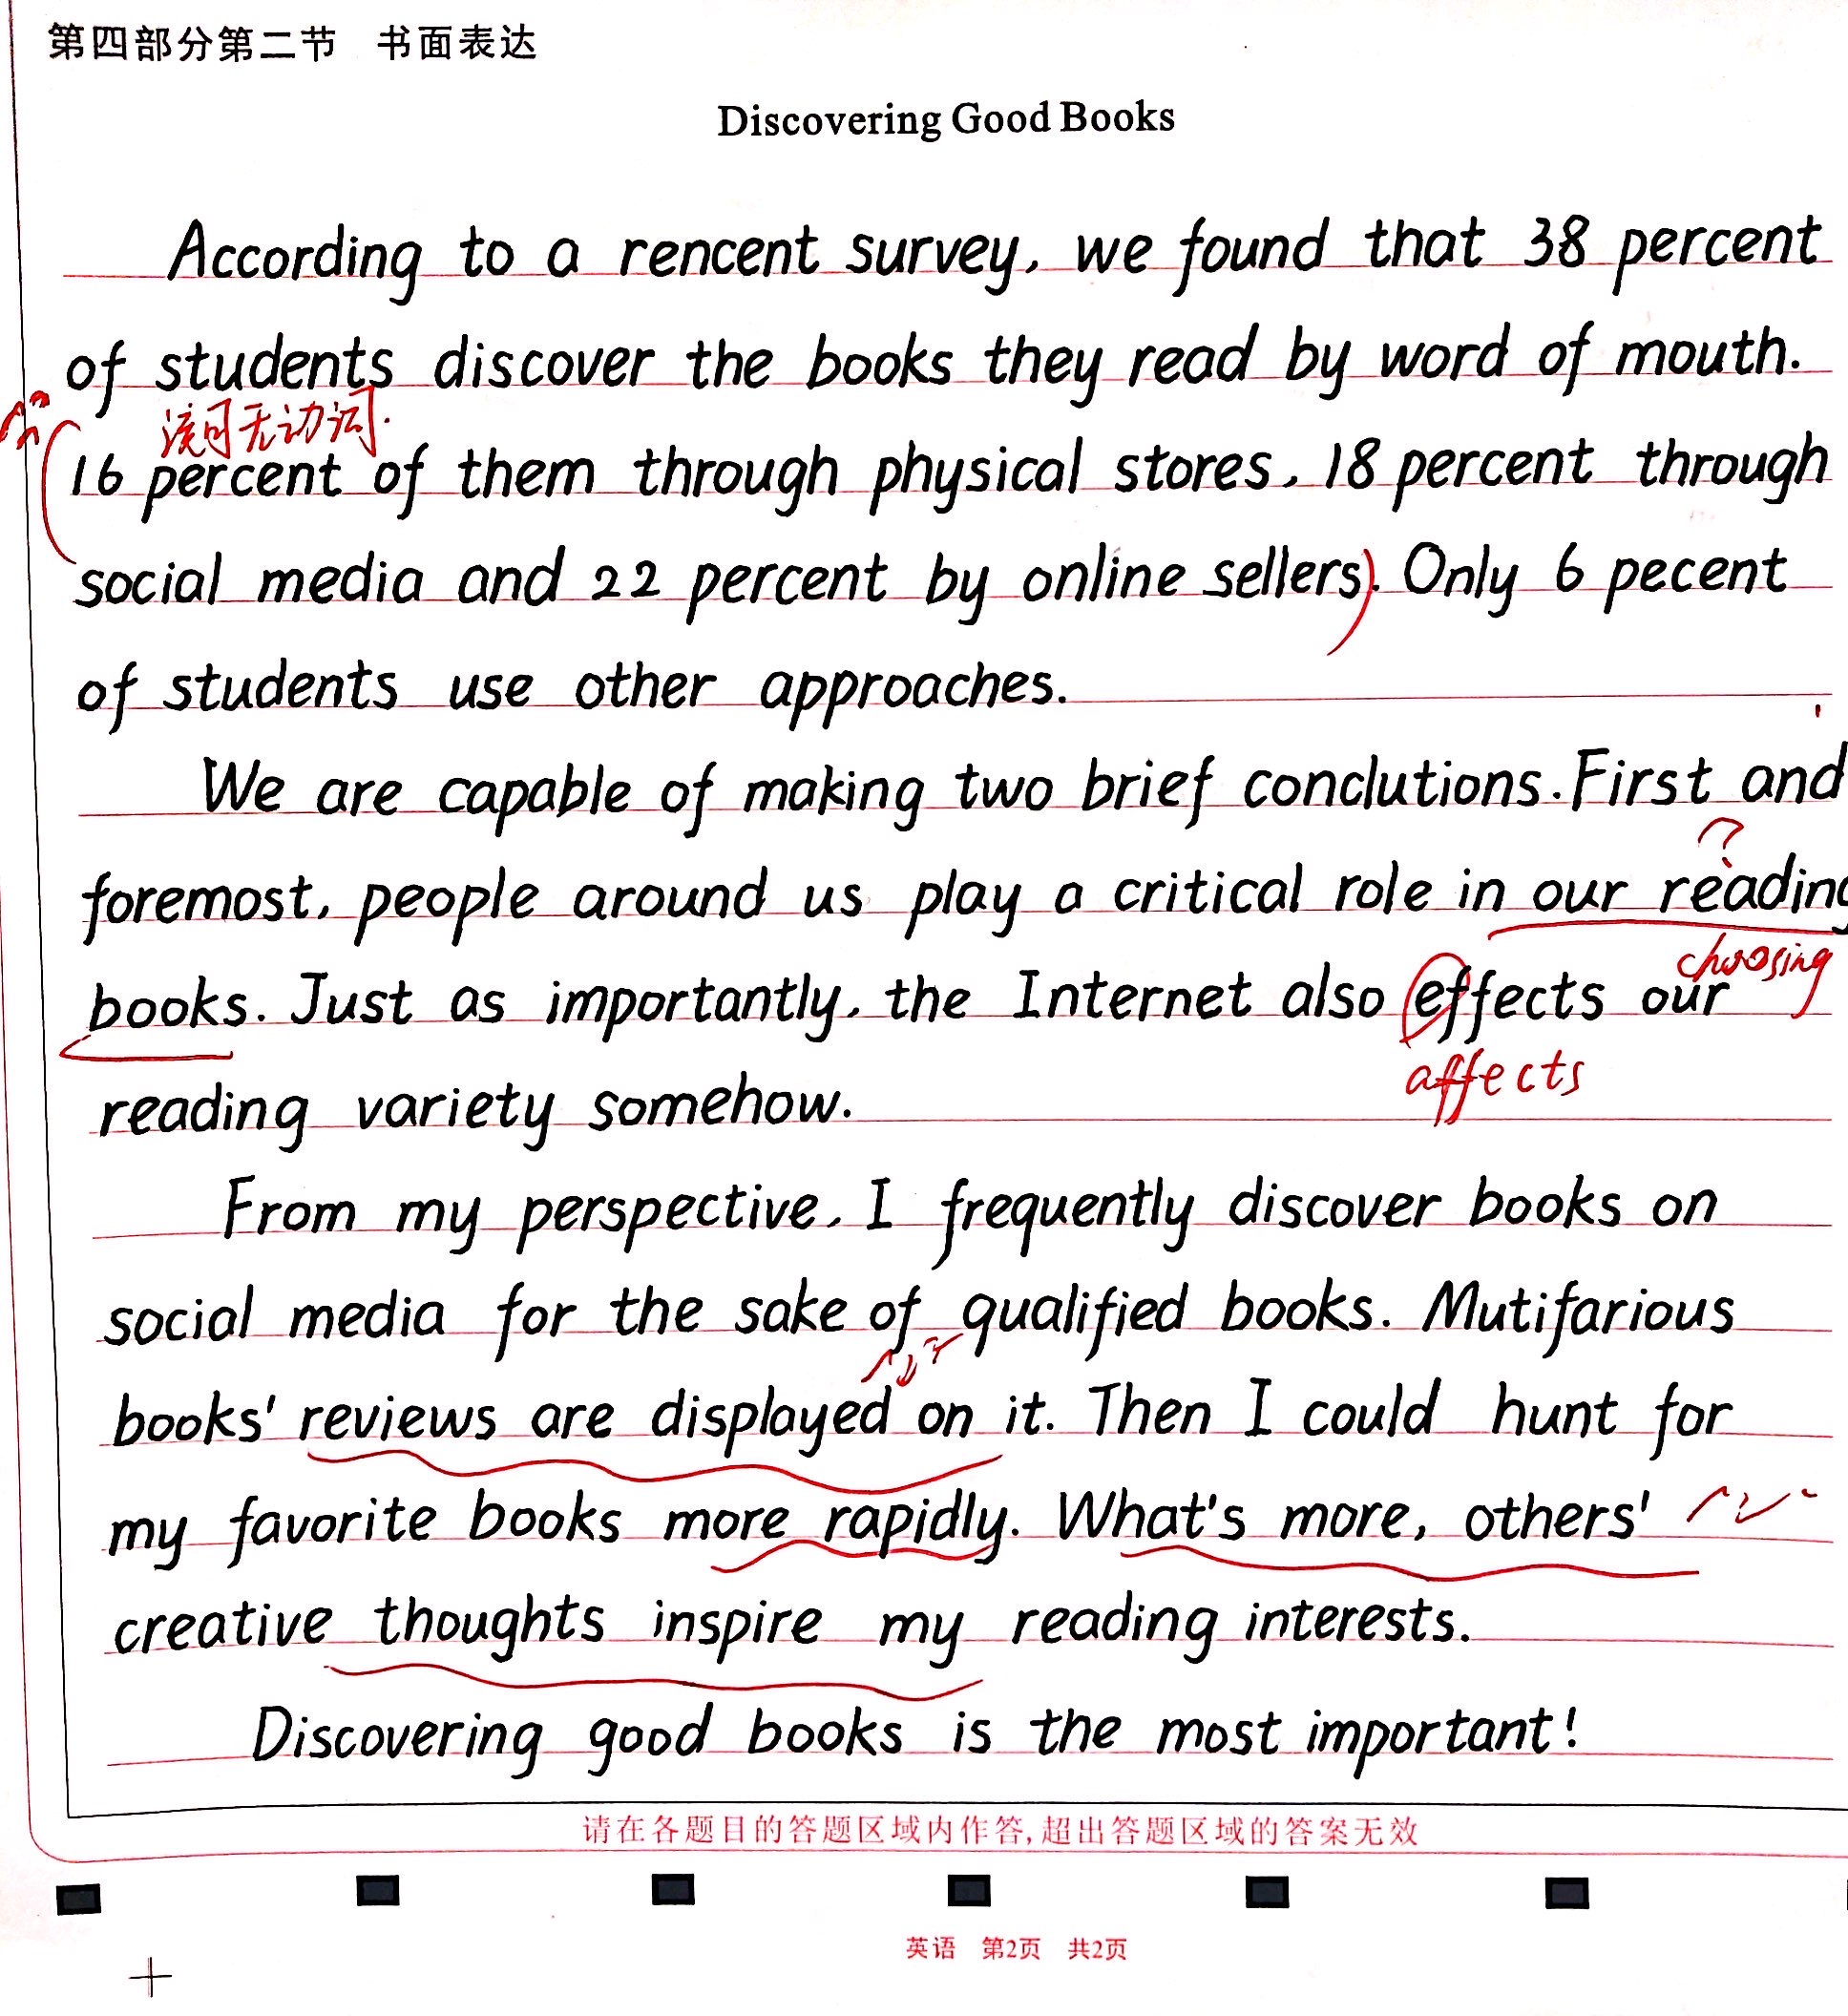 第四部分第二节 书面表达
Discovering Good Books
According to a rencent survey, we found that 38 percent
of students discover the books they read by word of mouth.
该句无动词.
16 percent of them through physical stores, 18 percent through
social media and 22 percent by online sellers). Only 6 pecent
of students use other approaches.
We are capable of making two brief conclutions. First and
foremost, people around us play a critical role in our reading
?
choosing
books. Just as importantly, the Internet also effects our
affects
reading variety somehow.
From my perspective, I frequently discover books on
social media for the sake of qualified books. Mutifarious
books' reviews are displayed on it. Then I could hunt for
my favorite books more rapidly. What's more, others'
creative thoughts inspire my reading interests.
Discovering good books is the most important!
请在各题目的答题区域内作答,超出答题区域的答案无效
英语 第2页 共2页